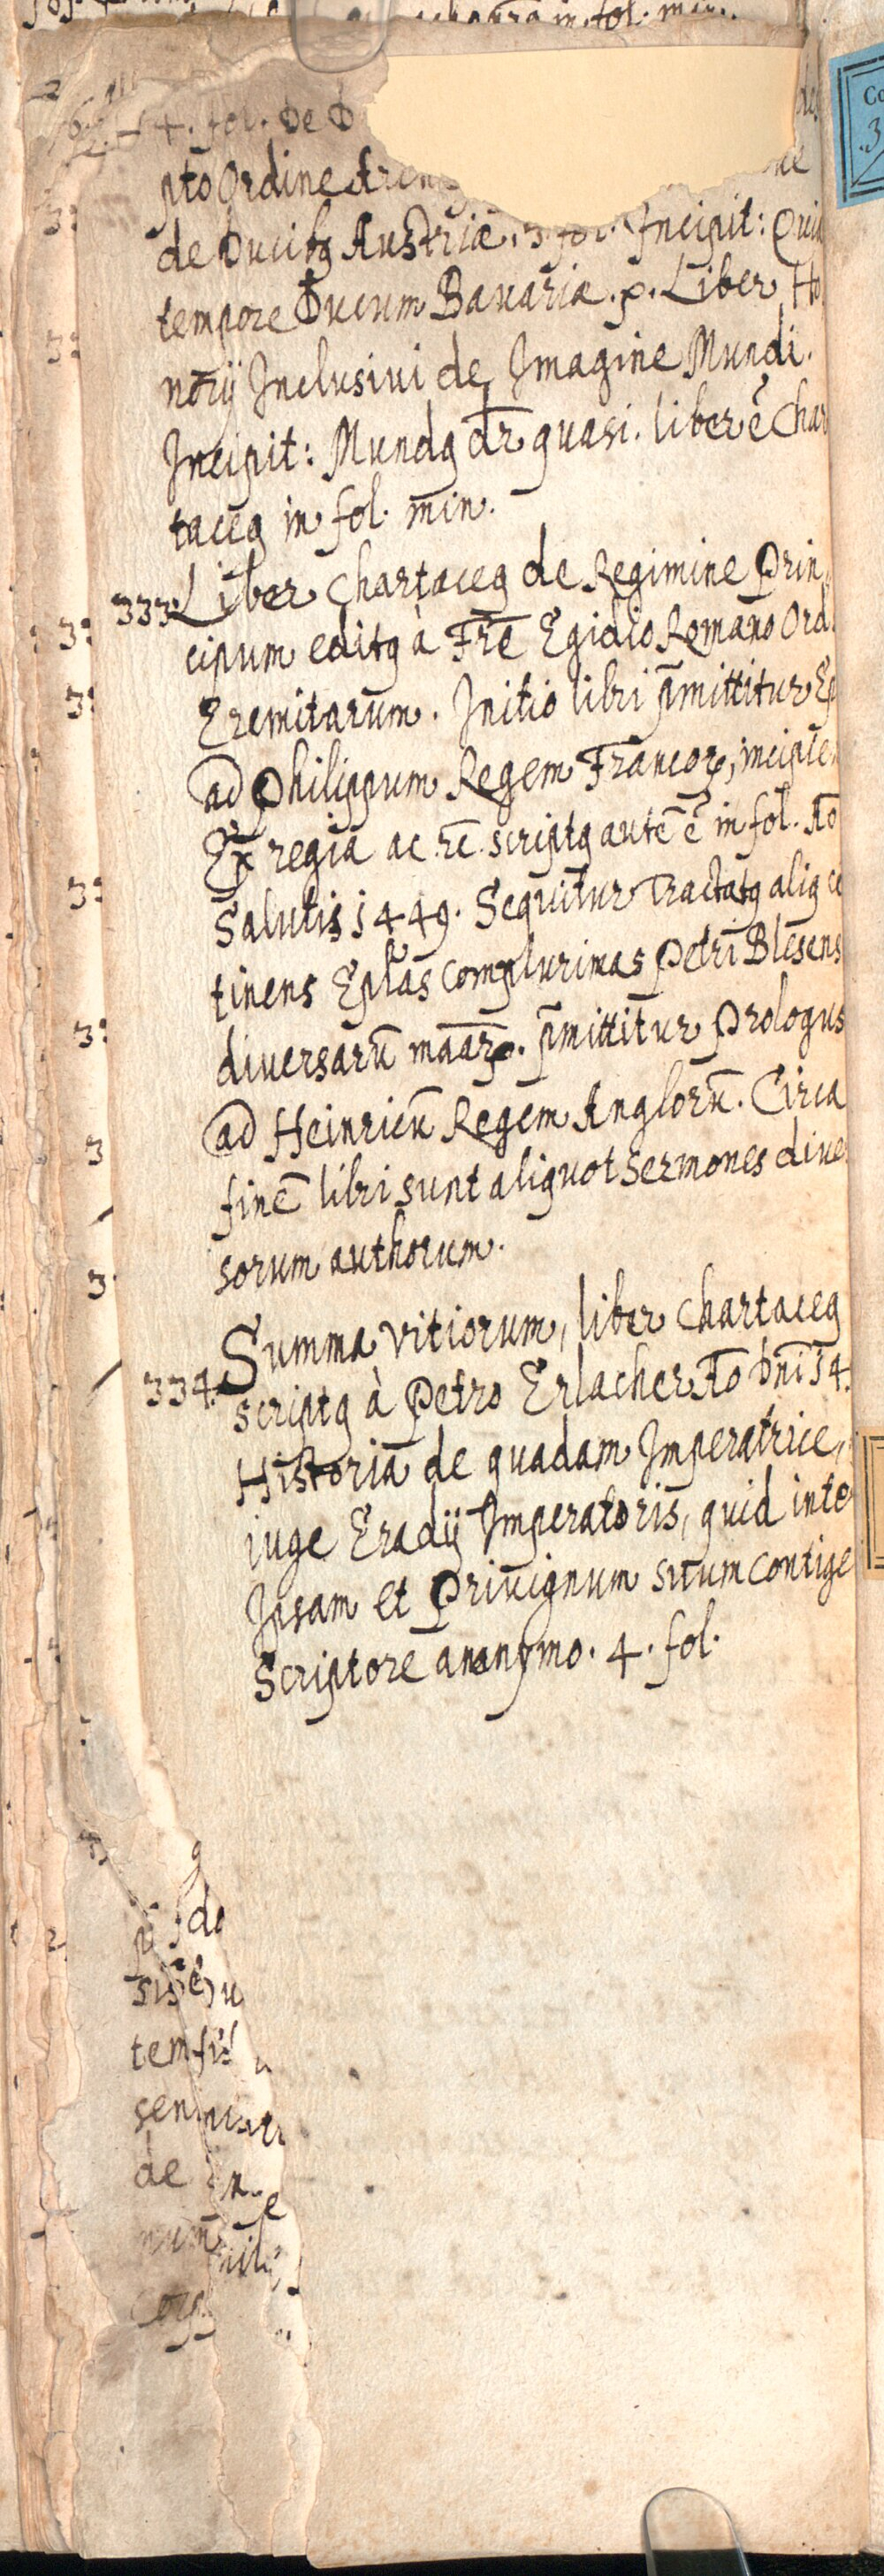 4. fol. De D
pto Ordine
de Ducibꝰ Austriæ. 3 fol. Incipit: Quia
tempore Ducum Bavariæ. p. Liber Ho
norij Inclusivi de Imagine Mundi.
Incipit: Mundꝰ dr̄ quasi. liber ē Char
taceꝰ in fol. min.
333. Liber Chartaceꝰ de Regimine Prin
cipum editꝰ à Frē Egidio Romano Ord.
Eremitarum. Initio libri p̄mittitur Ep
ad Philippum Regem Francoꝝ, incipie
Ex regia ac rc. scriptꝰ autē ē in fol. Aō
Salutis 1449. Sequitur Tractatꝰ aliꝰ cō
tinens Eplās complurimas Petri Blesens
diversarū māārꝝ. p̄mittitur Prologus
ad Heinricū Regem Anglorū. Circa
finē libri sunt aliquot Sermones dive
sorum authorum.
334. Summa vitiorum, liber Chartaceꝰ
scriptꝰ à Petro Erlacher Aō Dn̄i 14.
Historia de quadam Imperatrice,
iuge Eradij Imperatoris, quid inte
Ipsam et Privignum suum contige
Scriptore anonymo. 4. fol.
de